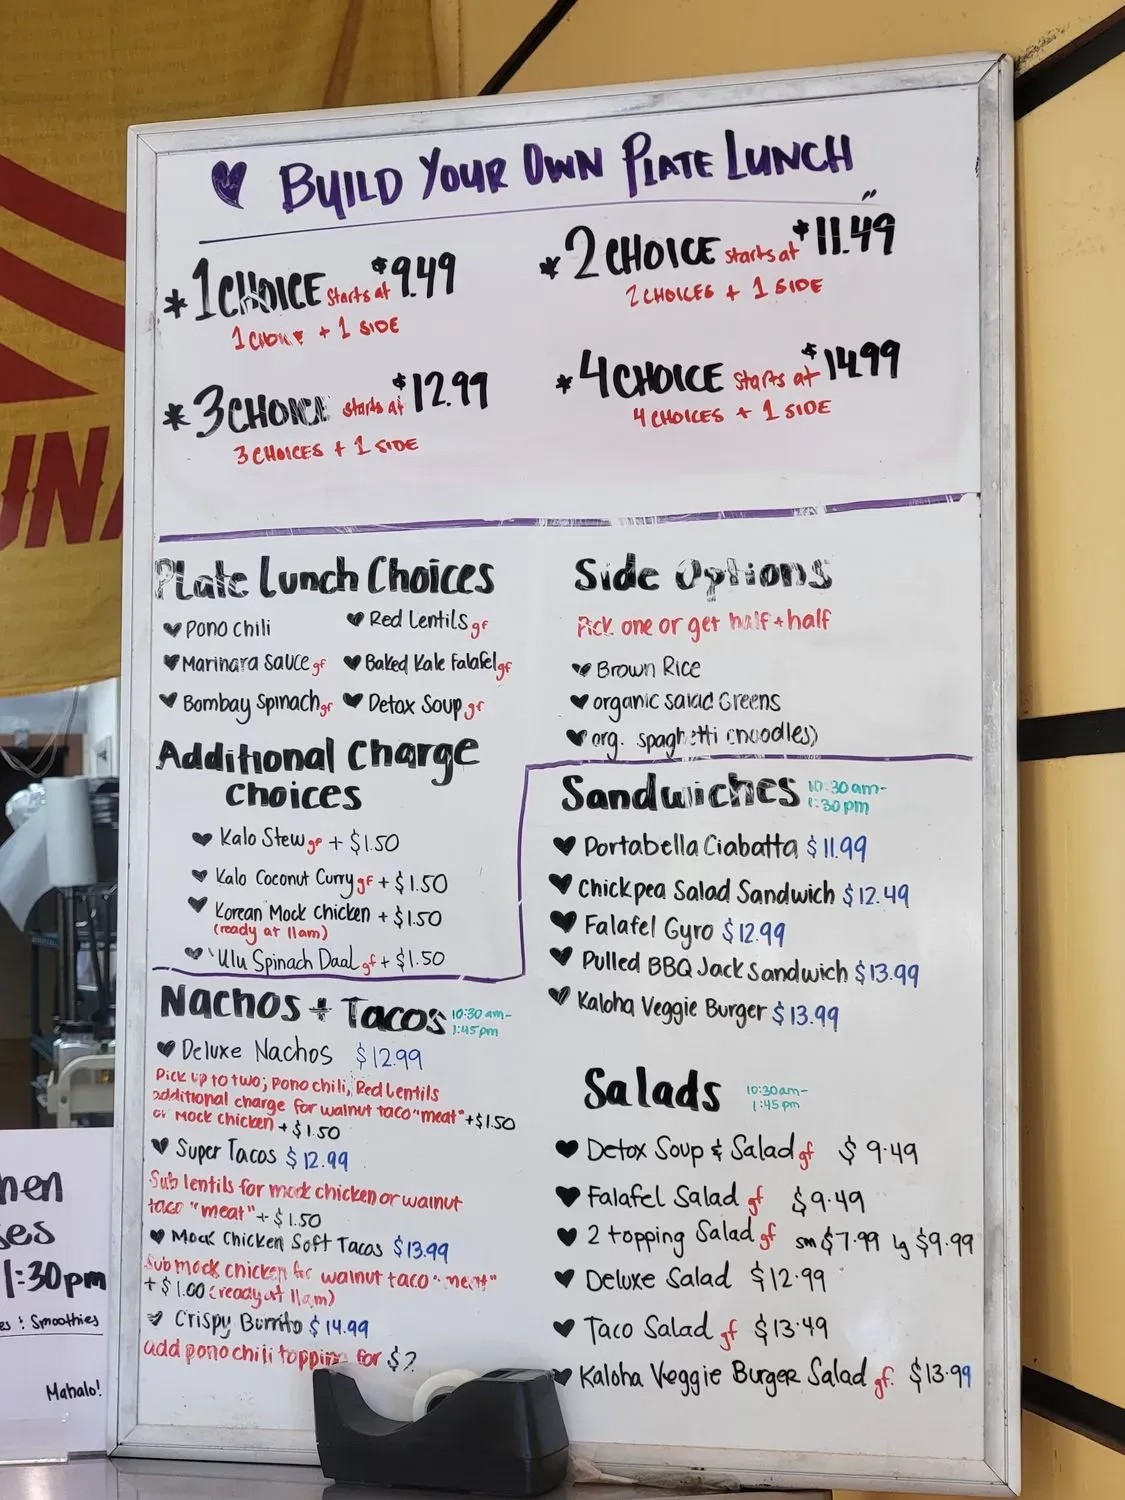 BUILD YOUR OWN PLATE LUNCH
* 1 CHOICE starts at $9.49
1 CHOICE + 1 SIDE
* 2 CHOICE starts at $11.49
2 CHOICES + 1 SIDE
* 3 CHOICE starts at $12.99
3 CHOICES + 1 SIDE
* 4 CHOICE starts at $14.99
4 CHOICES + 1 SIDE
Plate Lunch Choices
Pono Chili
Red Lentils gf
Marinara Sauce gf
Baked Kale Falafel gf
Bombay Spinach gf
Detox Soup gf
Additional Charge
Choices
Kalo Stew gf + $1.50
Kalo Coconut Curry gf + $1.50
Korean Mock Chicken + $1.50
(ready at 11am)
Ulu Spinach Daal gf + $1.50
Nachos + Tacos 10:30 am-
1:45 pm
Deluxe Nachos $12.99
Pick up to two; pono chili, Red Lentils
additional charge for walnut taco "meat" +$1.50
or mock chicken + $1.50
Super Tacos $12.99
Sub lentils for mock chicken or walnut
taco "meat" + $1.50
Mock Chicken Soft Tacos $13.99
Sub mock chicken for walnut taco "meat"
+ $1.00 (ready at 11am)
Crispy Burrito $14.99
add pono chili topping for $2
Side Options
Pick one or get half + half
Brown Rice
organic salad Greens
org. spaghetti (noodles)
Sandwiches 10:30 am-
1:30 pm
Portabella Ciabatta $11.99
Chickpea Salad Sandwich $12.49
Falafel Gyro $12.99
Pulled BBQ Jack Sandwich $13.99
Kaloha Veggie Burger $13.99
Salads 10:30am-
1:45 pm
Detox Soup & Salad gf $9.49
Falafel Salad gf $9.49
2 topping Salad gf sm $7.99 lg $9.99
Deluxe Salad $12.99
Taco Salad gf $13.49
Kaloha Veggie Burger Salad gf. $13.99
1:30pm
Smoothies
Mahalo!